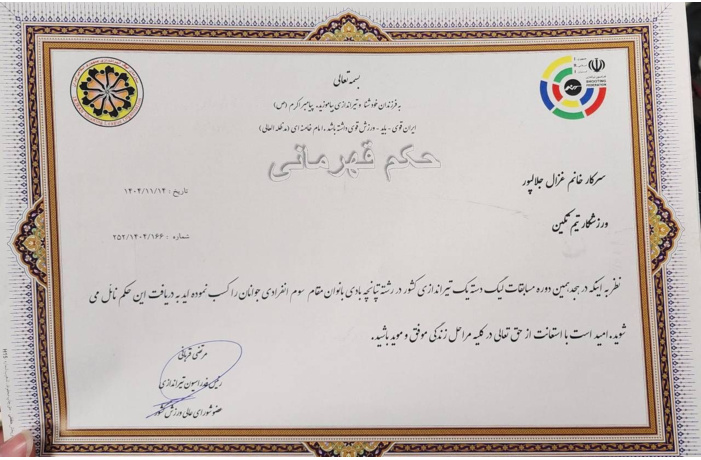 بسمه تعالی
به فرزندان خود شنا و تیراندازی بیاموزید، پیامبر اکرم (ص)
ایران قوی - باید - ورزش قوی داشته باشد. امام خامنه ای (مدظله العالی)
حکم قهرمانی
سرکار خانم غزال جلالپور
تاریخ : ۱۴۰۲/۱۱/۱۲
ورزشکار تیم تمکین
شماره : ۲۵۲/۱۴۰۲/۱۶۶
نظر به اینکه در هجدهمین دوره مسابقات لیگ دسته یک تیراندازی کشور در رشته تپانچه بادی بانوان مقام سوم انفرادی جوانان را کسب نموده اید به دریافت این حکم نائل می
شوید. امید است با استعانت از حق تعالی در کلیه مراحل زندگی موفق و موید باشید.
مرتضی قربانی
رئیس فدراسیون تیراندازی
عضو شورای عالی ورزش کشور